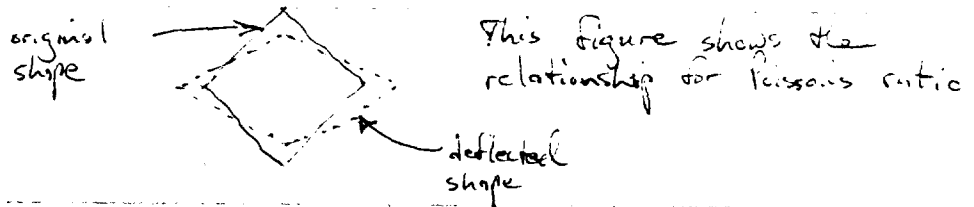 original
shape
This figure shows the
relationship for Poissons ratio
deflected
shape